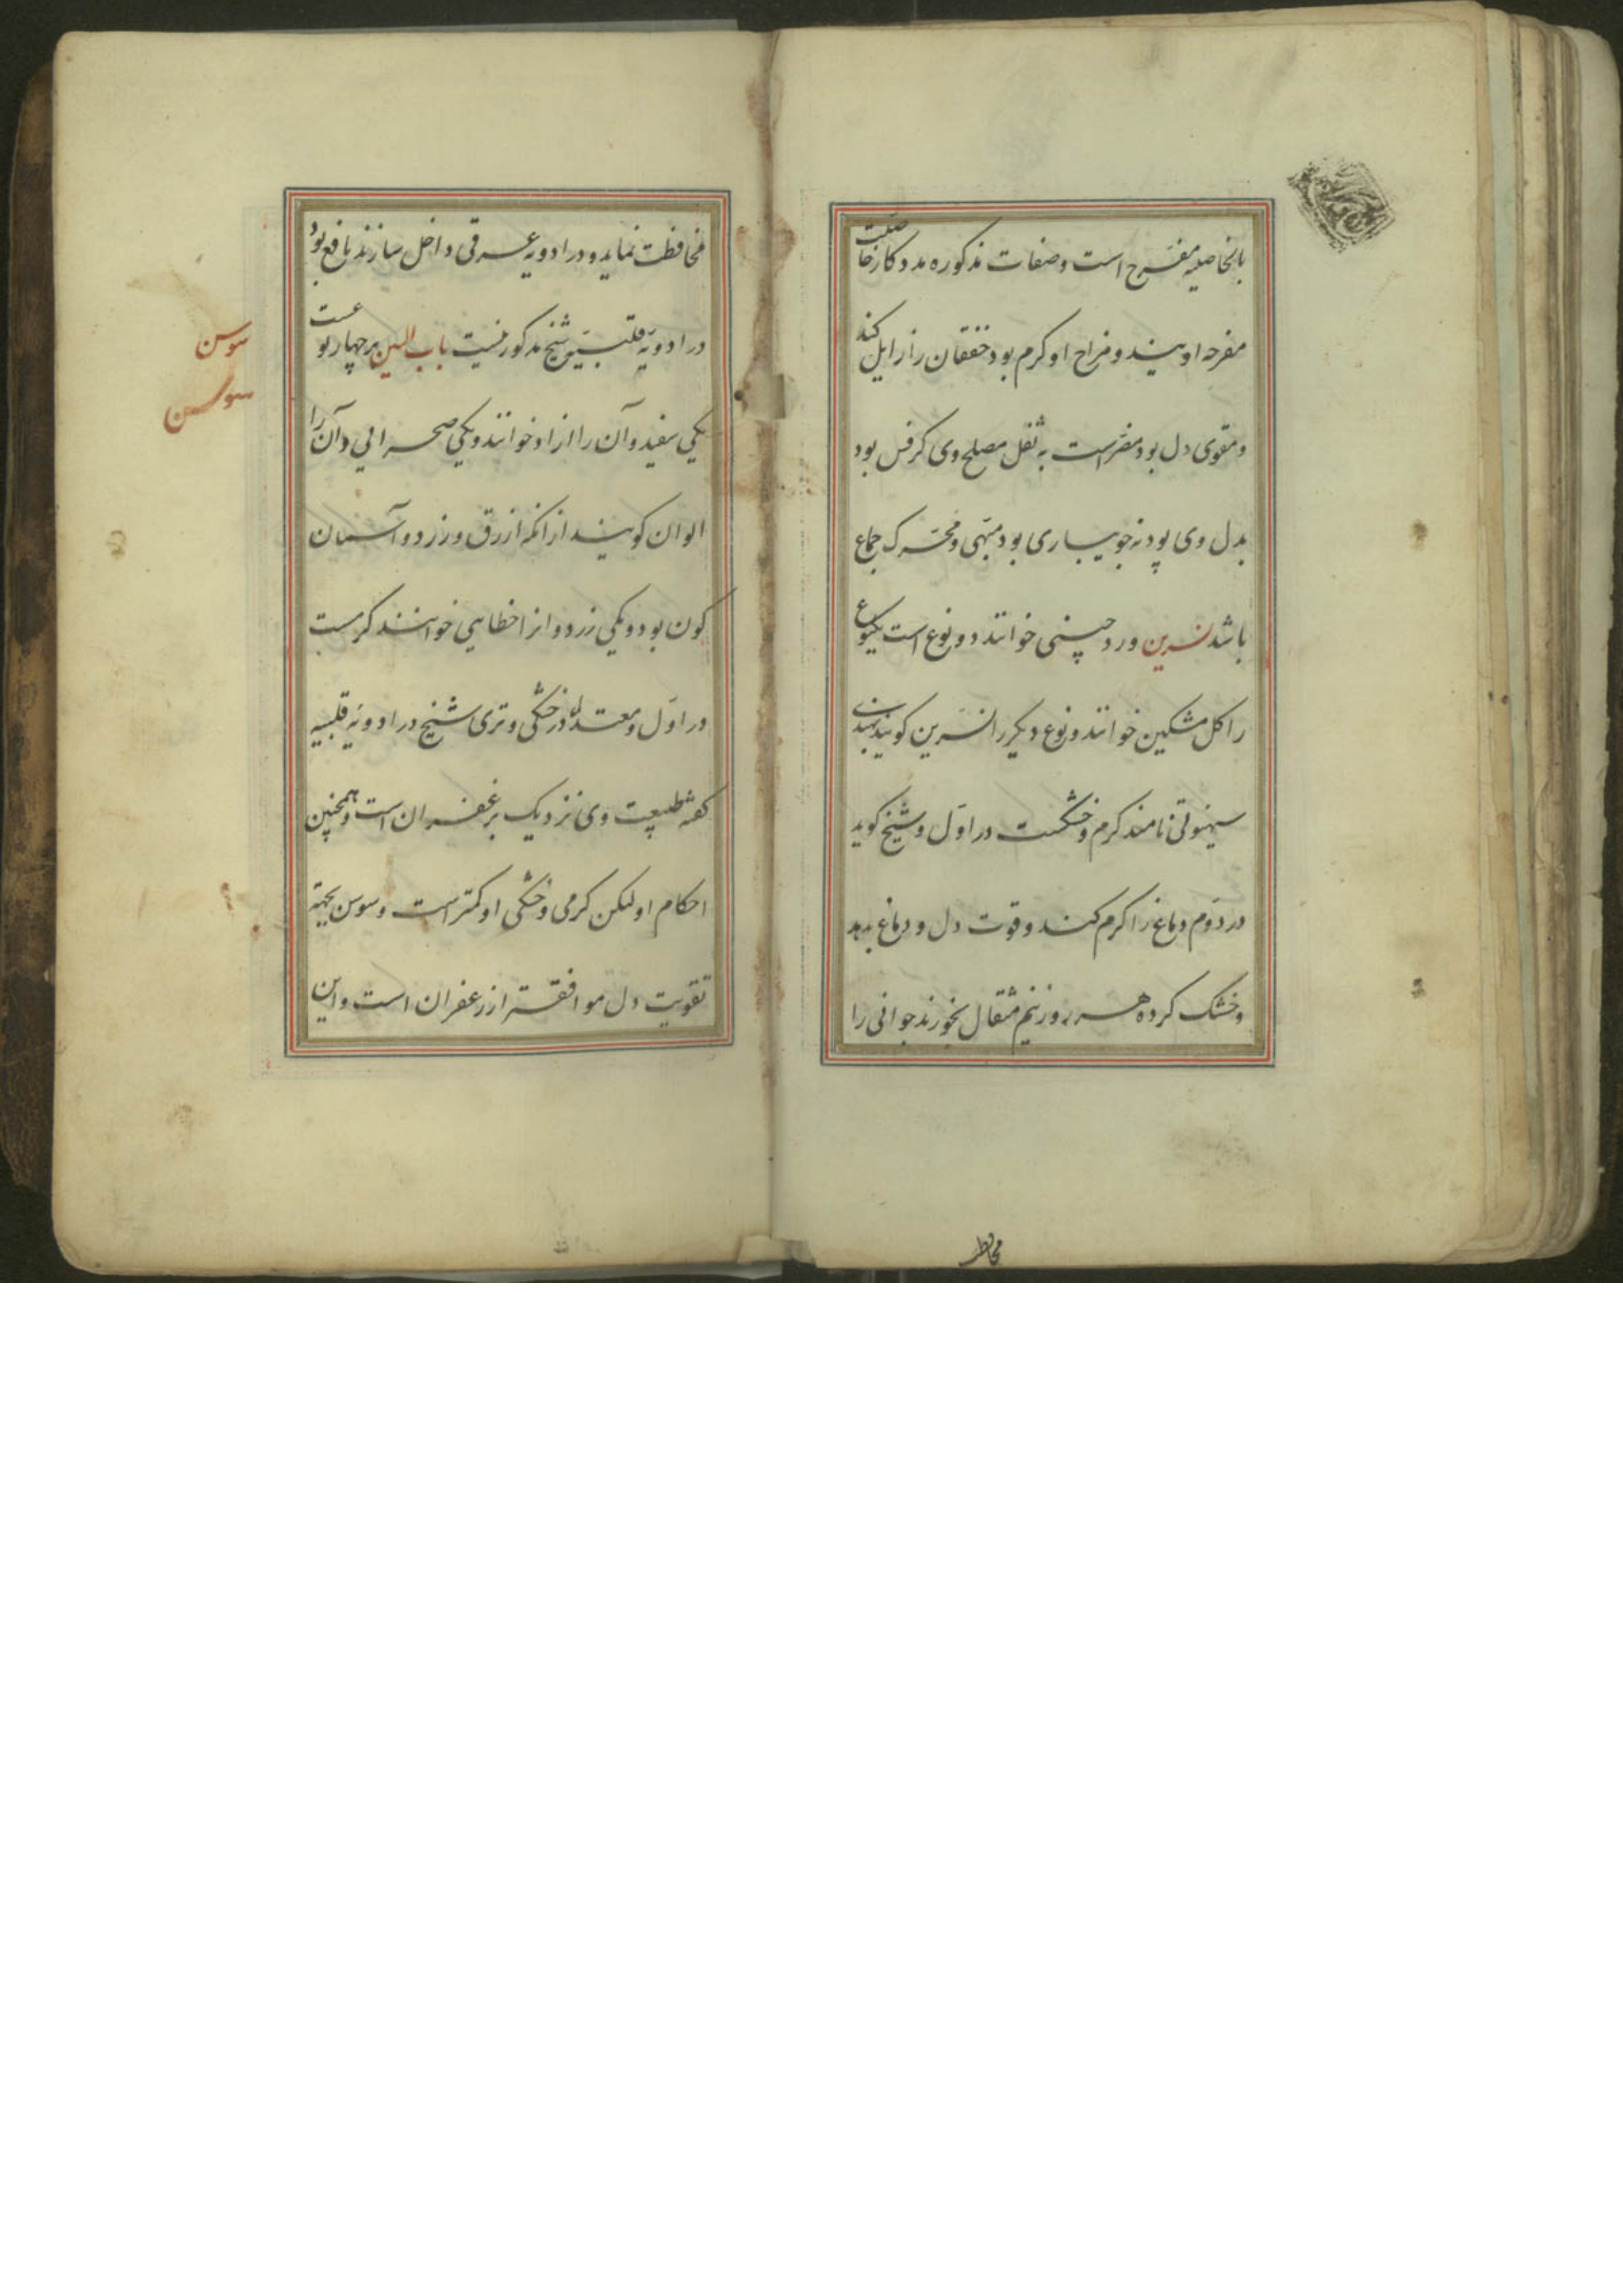 بالخاصیه مفرح است وصفات مذکوره مددکار خاصیت
مفرحه اویند و مزاج او کرم بود خفقان را زایل کند
و مقوی دل بود مضر است به ثفل مصلح وی کرفس بود
بدل وی پودنه جویباری بود مشهی و محرک جماع
باشد نسرین ورد چینی خوانند دو نوع است یکنوع
را کل مشکین خوانند و نوع دیکر را نسرین کویند بهندی
سیوتی نامند کرم و خشکست در اول و شیخ کوید
در دوم دماغ را کرم کند و قوت دل و دماغ بدهد
و خشک کرده هر روز نیم مثقال بخورند جوانی را
محافظ
محافظت نماید و در ادویه عرقی داخل سازند نافع بود
در ادویه قلبیه شیخ مذکور نیست باب السین بر چهار نوعست
یکی سفید و آن را ازاد خوانند و یکی صحرایی و آن را
الوان کویند از انکه ازرق و زرد و آسمان
کون بود و یکی زرد و انرا خطایی خوانند کرمست
در اول و معتدله در خشکی و تری شیخ در ادویه قلبیه
کفته طبیعت وی نزدیک بزعفران است و همچنین
احکام او لیکن کرمی و خشکی او کمتر است و سوسن بجهة
تقویت دل موافقتر از زعفران است و این
سوسن
سوسن